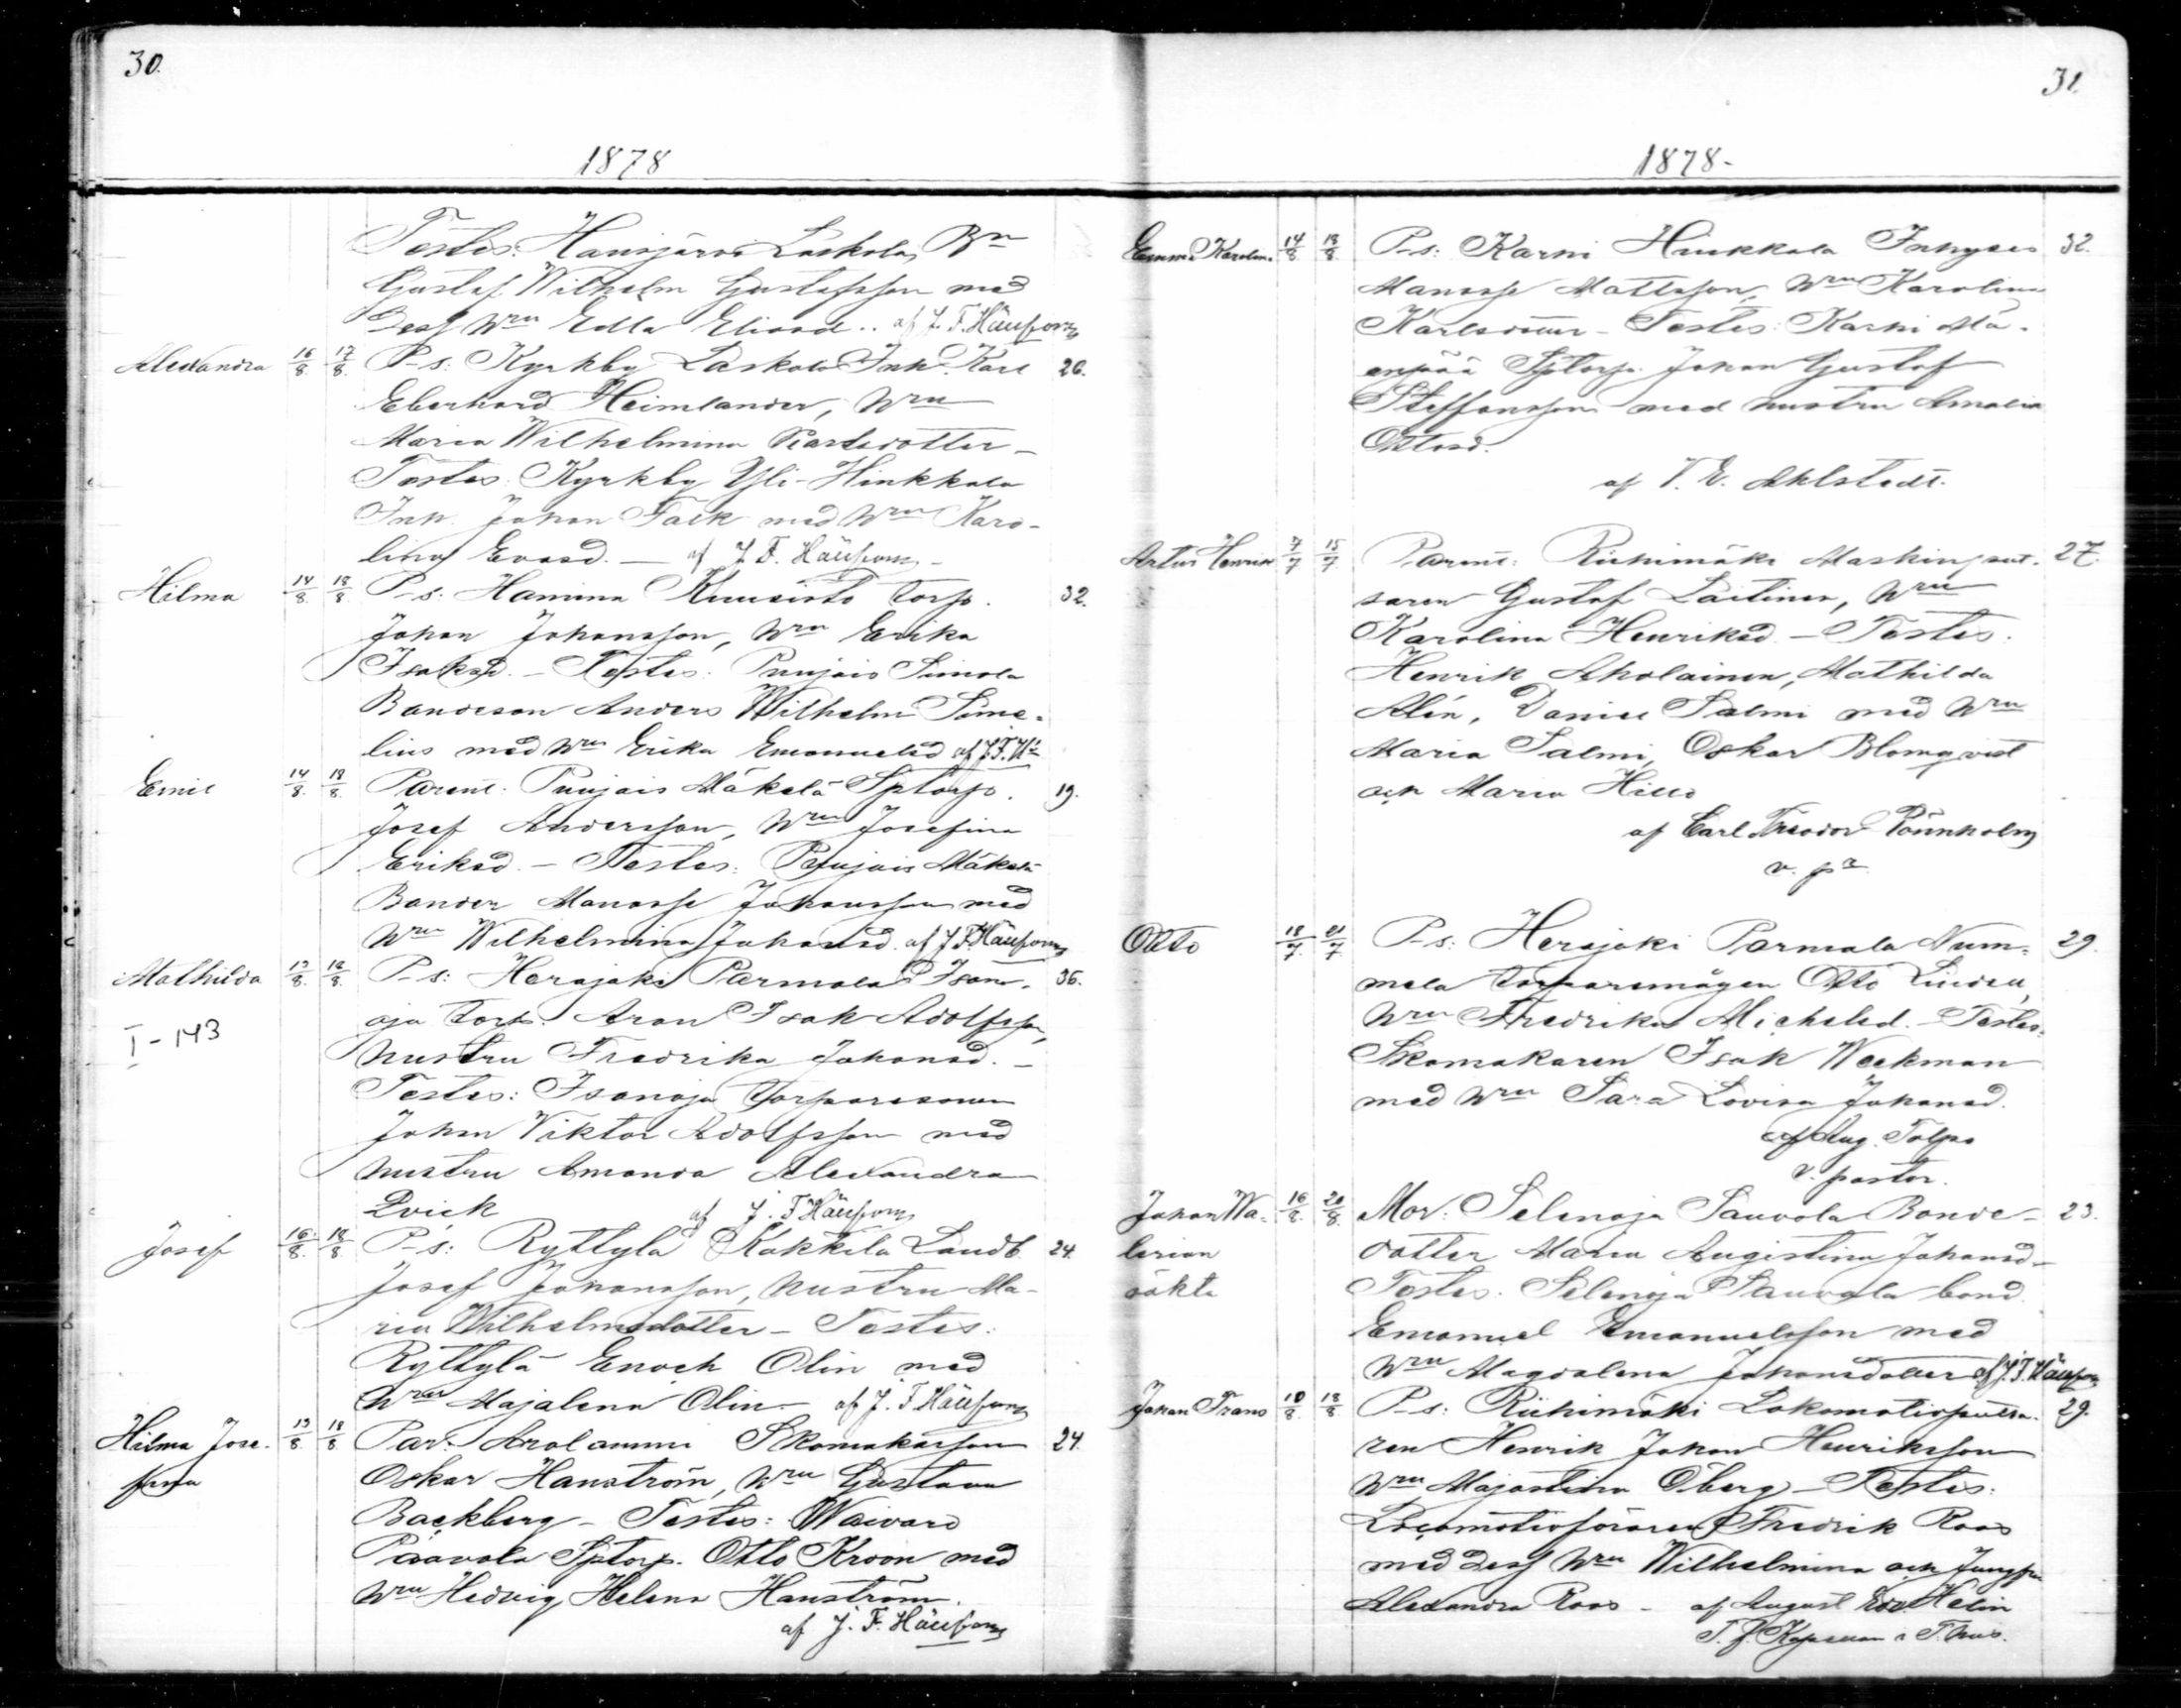 30.
1878
Testes: Hausjärvi Laskola, Bn
Gustaf Wilhelm Gustafsson med
dess Wru Edla Eliasd.. af J. F. Häusfom
Alexandra 16/8. 17/8. P-s: Kyrkby Laskola Inh. Karl 26.
Eberhard Heimlander, Wru
Maria Wilhelmina Karlsdotter –
Testes: Kyrkby Yli-Hinkkala
Inh. Johan Falk med Wru Karo-
lina Evasd. – af J. F. Häusfom –
Hilma 14/8. 18/8. P-s: Hamina Kuusisto torp. 32.
Johan Johansson, Wru Erika
Isaksd. – Testes: Puujais Simola
Bondeson Anders Wilhelm Sime-
lius med Wru Erika Emanuelsd af J. F. Hä
Emil 14/8. 18/8. Parent: Puujais Mäkelä Sptorp. 19.
Josef Andersson, Wru Josefina
Eriksd. – Testes: Puujais Mäkelä
Bonden Manasse Johansson med
Wru Wilhelmina Johansd. af J. F. Häusfom
Mathilda 12/8. 18/8. P-s: Herajoki Parmala Ison- 36.
I-143
oja torp. Aron Isak Adolfsson,
hustru Fredrika Johansd. –
Testes: Isonoja Torparesonen
Johan Viktor Adolfsson med
hustru Amanda Alexandra
Qvick af J. F. Häusfom
Josef 16/8. 18/8 P-s: Ryttylä Kakkila Landb. 24.
Josef Johansson, hustru Ma-
ria Wilhelmsdotter – Testes:
Ryttylä Enoch Olin med
Wru Majalena Olin – af J. F. Häusfom
Hilma Jose- 13/8. 18/8 Par: Arolammi Skomakarson 24.
fina
Oskar Hanström, Wru Gustava
Backberg – Testes: Waivard
Paavola Sptorp. Otto Kroon med
Wru Hedvig Helena Hanström.
af J. F. Häusfom
31.
1878-
Emma Karolina 14/8 18/8. P-s: Karhi Hinkkala Inhyses 32.
Manasse Mattsson, Wru Karolina
Karlsdotter – Testes: Karhi Mä-
enpää Sptorp. Johan Gustaf
Steffansson med hustru Amalia
Ottosd.
af V. E. Ahlstedt.
Artur Henrik 7/7 15/7. Parent: Riihimäki Maskinput- 27.
saren Gustaf Laitinen, Wru
Karolina Henriksd. – Testes:
Henrik Aholainen, Mathilda
Alén, Daniel Salmi med Wru
Maria Salmi, Oskar Blomqvist
och Maria
af Carl Theodor Rönnholm
v. pr.
Otto 18/7. 21/7 P-s: Herajoki Parmala Num- 29.
mela torparemågen Otto Lindén,
Wru Fredrika Michelsd. – Testes:
Skomakaren Isak Weckman
med Wru Sara Lovisa Johansd.
af Aug. Tolpo
v. pastor.
Johan Wa- 16/8. 20/8. Mor: Selenoja Sauvola Bonde- 23.
lerian
oäkta
dotter Maria Augustina Johansd –
Testes: Selenoja Sauvola bond.
Emanuel Emanuelsson med
Wru Magdalena Johansdotter af J. F. Häusfom
Johan Frans 10/8. 18/8. P-s: Riihimäki Lokomotivputsa- 29.
ren Henrik Johan Henriksson
Wru Majastina Öberg – Testes:
Locomotivföraren Fredrik Roos
med dess Wru Wilhelmina och Jungfru
Alexandra Roos – af August Edv. Helin